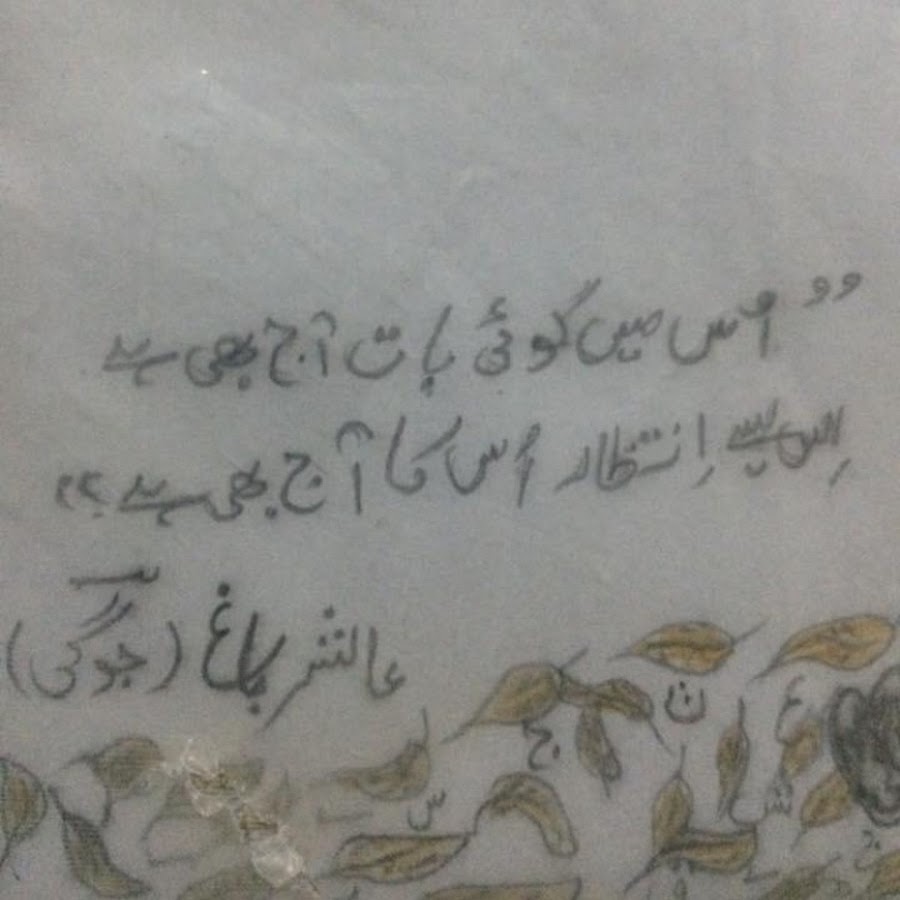 " اُس میں کوئی بات آج بھی ہے
اِس لیے اِنتظار اُس کا آج بھی ہے "
باغ (جوگی)
ن
ع
ج
ش
س